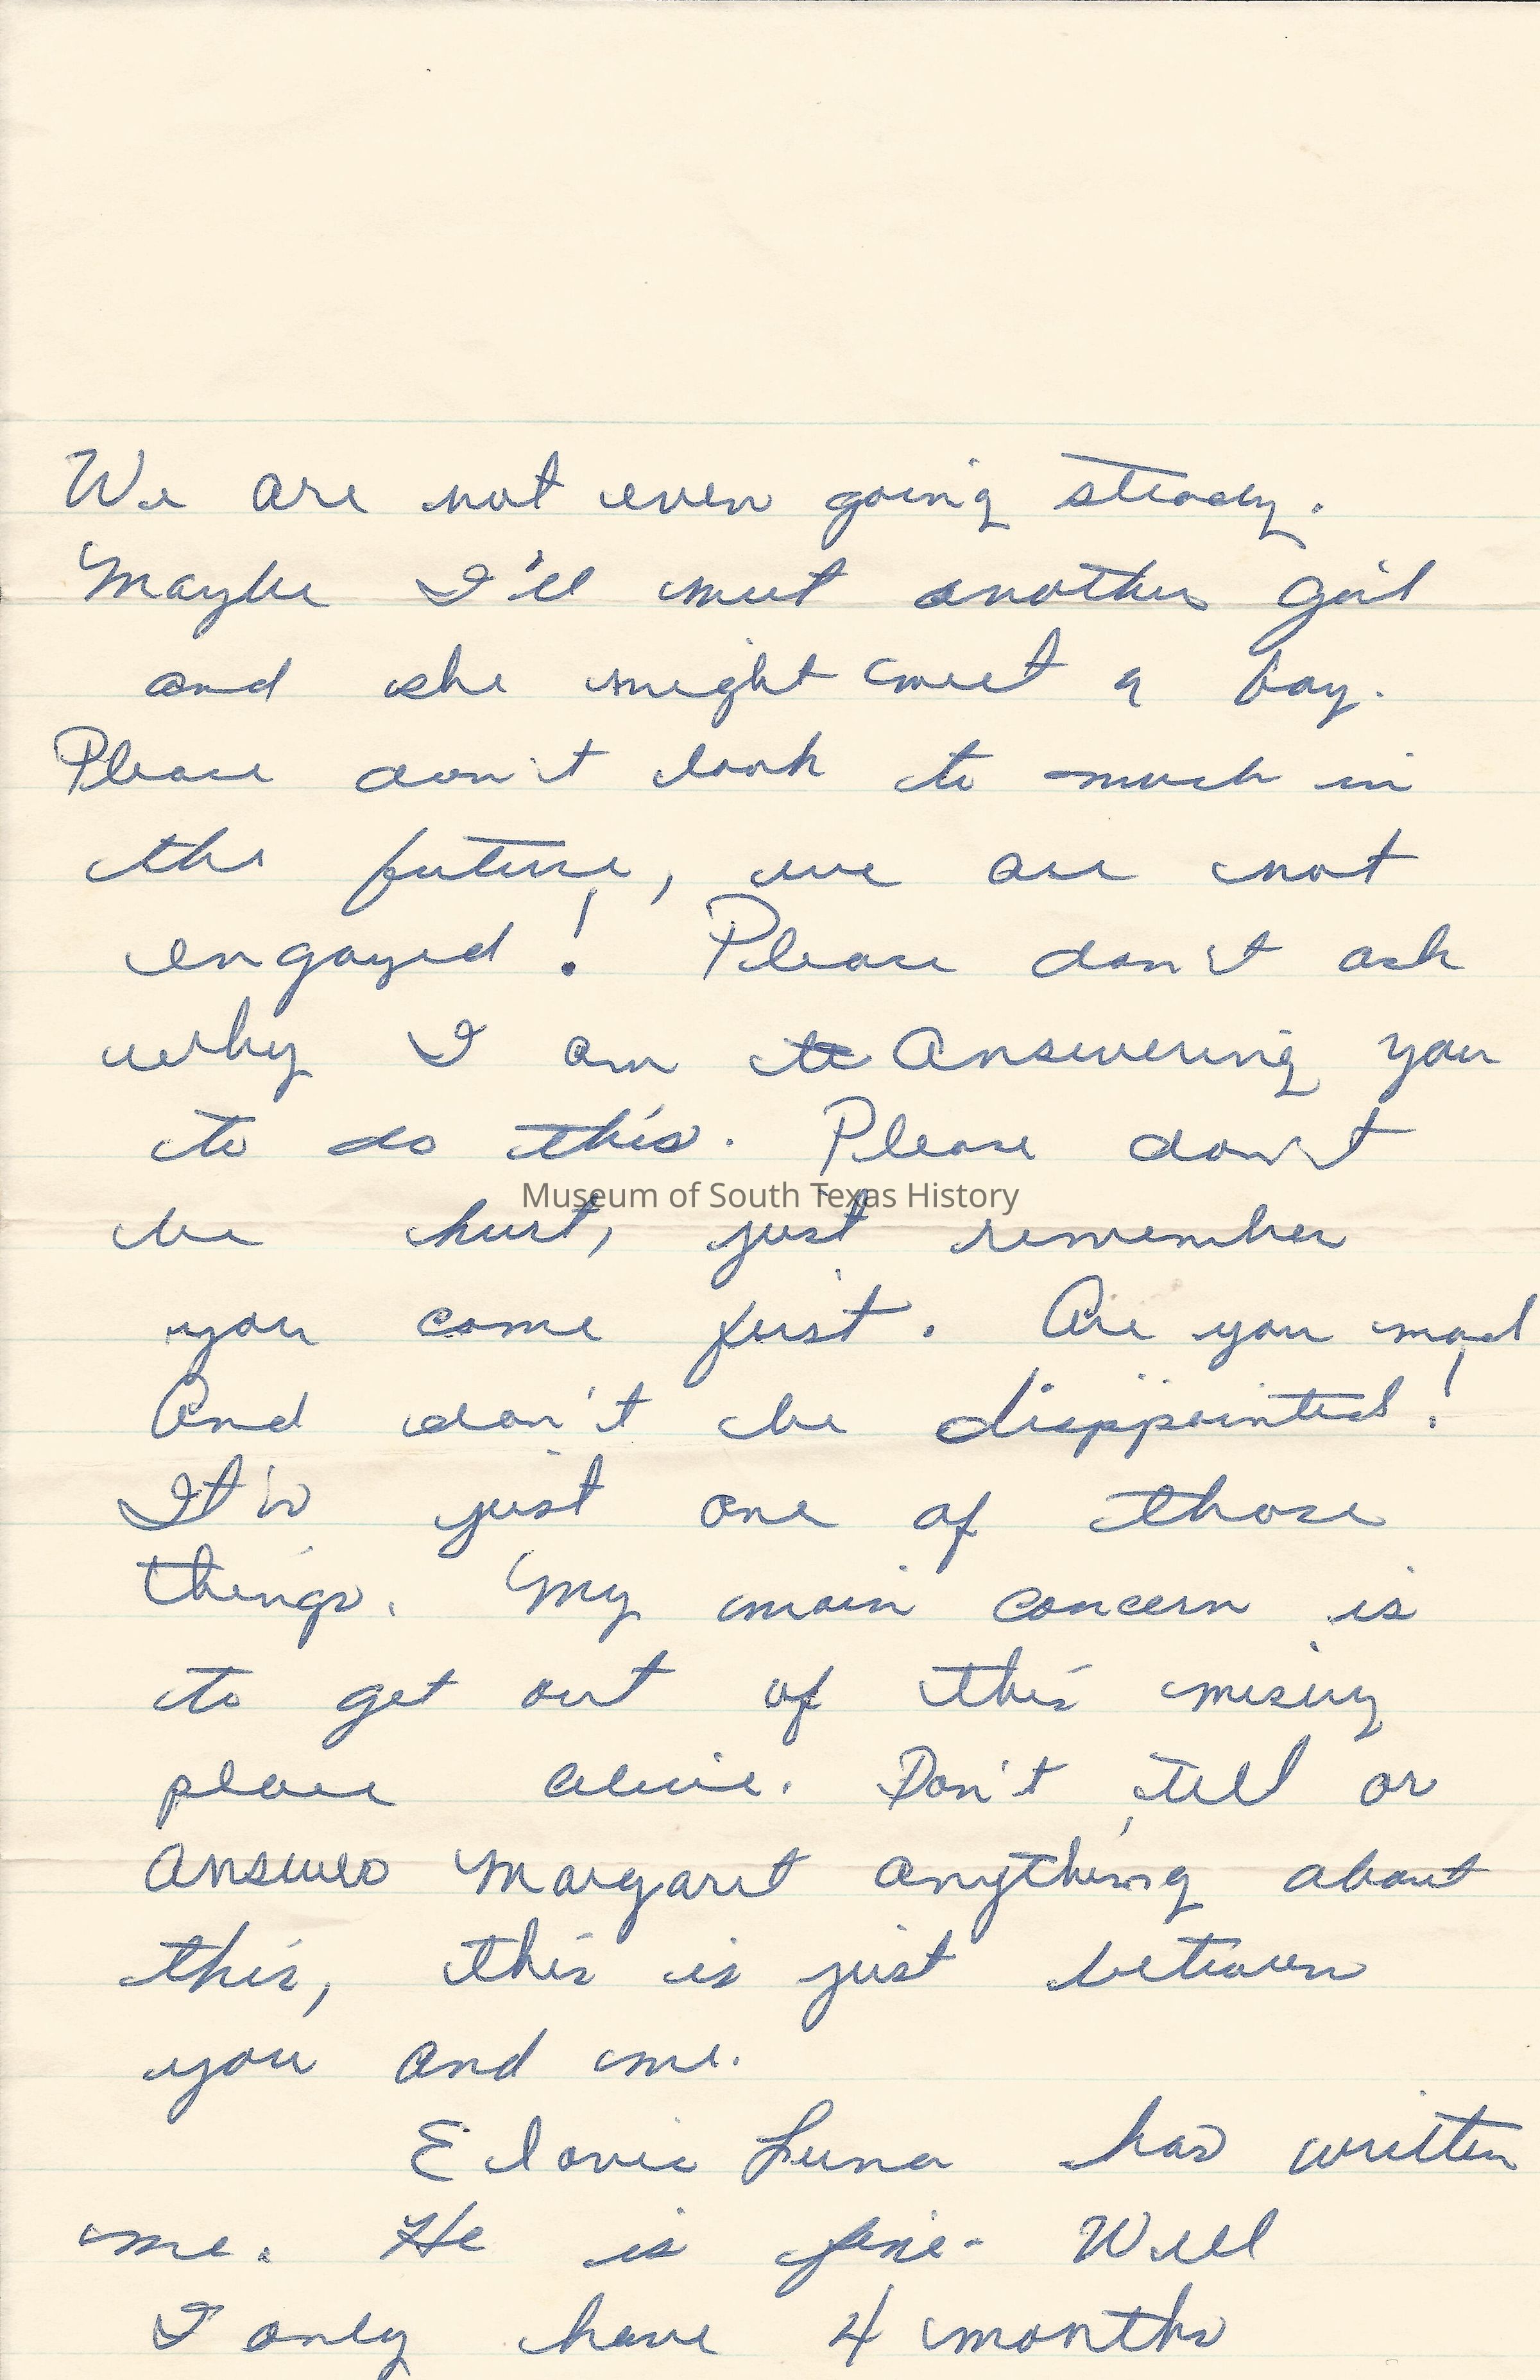 We are not even going steady.
Maybe I'll meet another girl
and she might meet a boy.
Please don't look to much in
the future, we are not
engaged! Please don't ask
why I am to answering you
to do this. Please don't
Museum of South Texas History
be hurt, just remember
you come first. Are you mad
And don't be disppointed!
It's just one of those
things. My main concern is
to get out of this misery
place alive. Don't tell or
answer Margaret anything about
this, this is just between
you and me.
Elovie Luna has written
me. He is fine. Well
I only have 4 months